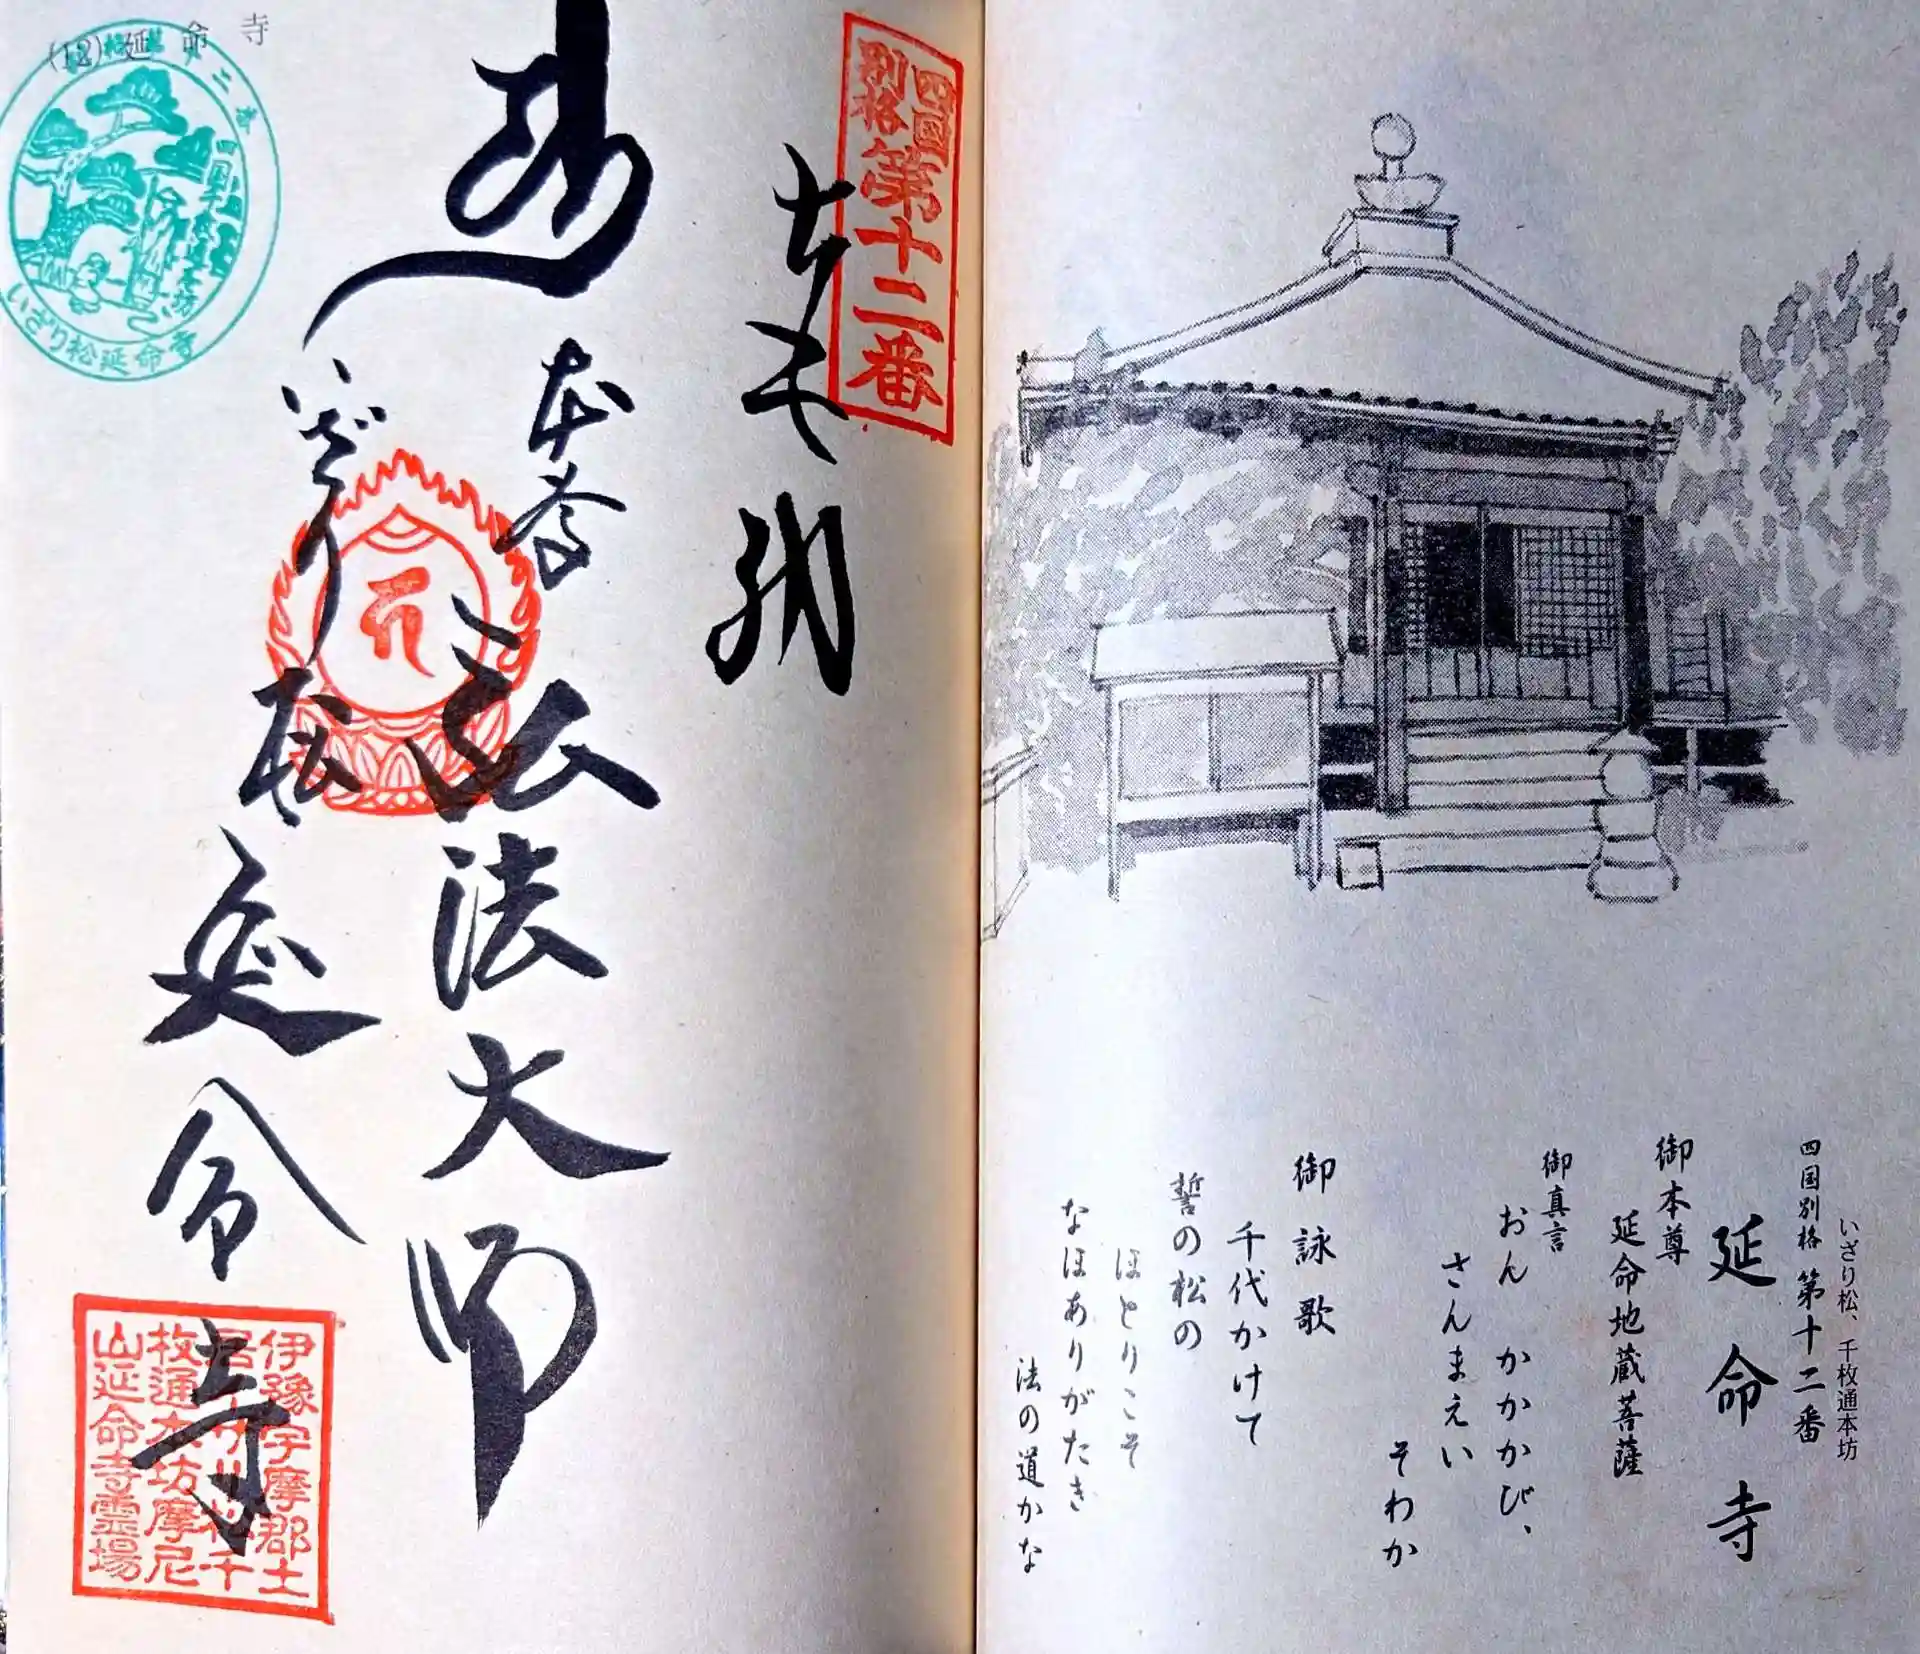 いざり松、千枚通本坊
四国別格 第十二番
延命寺
御本尊
延命地蔵菩薩
御真言
おん かかかび、
さんまえい
そわか
御詠歌
千代かけて
誓の松の
ほとりこそ
なほありがたき
法の道かな
四国
別格
第十二番
奉納
本尊
弘法大師
いざり松
延命寺
(12)延命寺
いざり松延命寺
伊豫宇摩郡土
居
松千
枚通本坊摩尼
山延命寺霊場